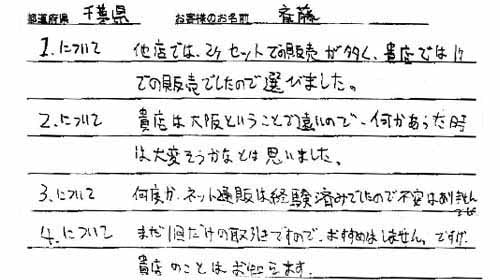 都道府県 千葉県 お客様のお名前 斉藤
1. について 他店では、2ケセットでの販売が多く、貴店では1ケ
での販売でしたので選びました。
2. について 貴店は大阪ということで遠いので、何かあった時
は大変そうかなとは思いました。
3. について 何度か、ネット通販は経験済みでしたので不安はありません
でした
4. について まだ1回だけの取引きですので、おすすめはしません。ですが、
貴店のことはお知らます。